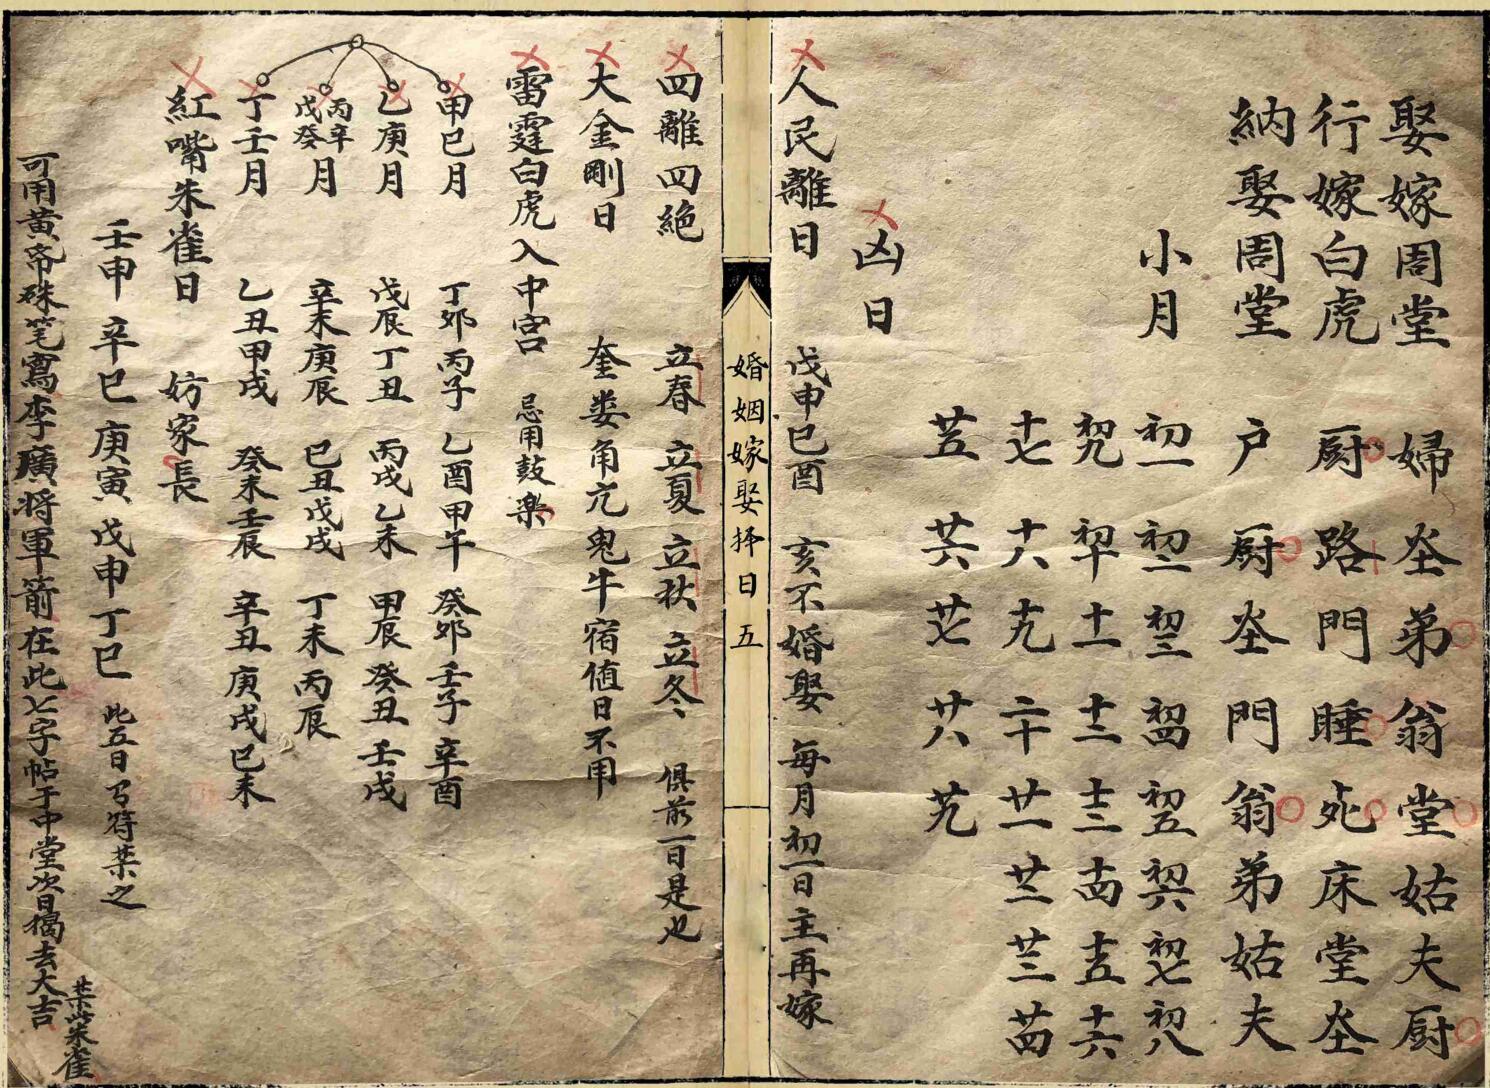 娶嫁周堂 婦灶弟翁堂姑夫厨
行嫁白虎 厨路門睡死床堂灶
納娶周堂 户厨灶門翁弟姑夫
小月 初一 初二 初三 初四 初五 初六 初七 初八
初九 初十 十一 十二 十三 十四 十五 十六
十七 十八 十九 二十 廿一 廿二 廿三 廿四
廿五 廿六 廿七 廿八 廿九
凶日
人民離日 戊申己酉 亥不婚娶 每月初一日主再嫁
婚姻嫁娶择日 五
四離四絶 立春 立夏 立秋 立冬 俱前一日是也
大金剛日 奎娄角亢鬼牛宿值日不用
雷霆白虎入中宮 忌用鼓楽
甲巳月 丁夘 丙子 乙酉 甲午 癸夘 壬子 辛酉
乙庚月 戊辰 丁丑 丙戌 乙未 甲辰 癸丑 壬戌
丙辛戊癸月 辛未 庚辰 巳丑 戊戌 丁未 丙辰
丁壬月 乙丑 甲戌 癸未 壬辰 辛丑 庚戌 巳未
紅嘴朱雀日 妨家長
壬申 辛巳 庚寅 戊申 丁巳 此五日 符禁之
可用黄帝硃笔寫李廣将軍箭在此七字帖于中堂次日揭去大吉
禁此朱雀